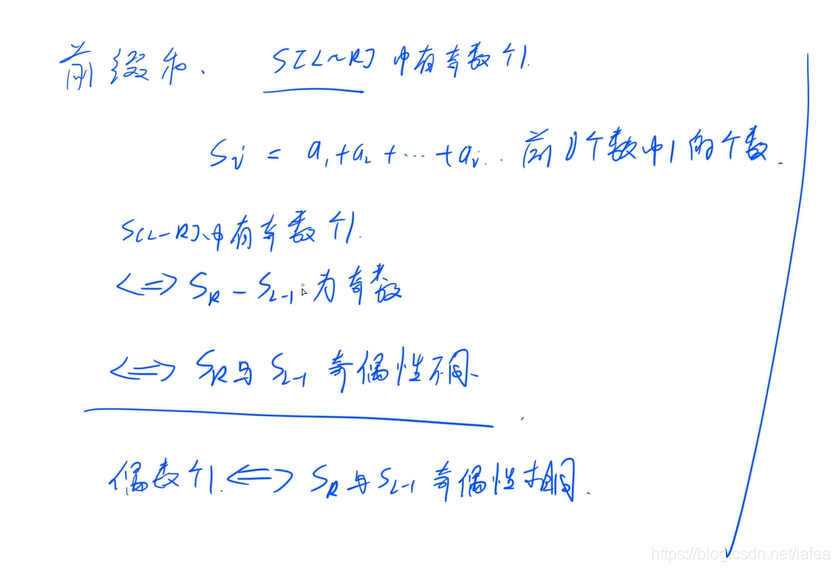 前缀和. S[L~R]中有奇数个1.
Si = a1+a2+···+ai.. 前i个数中1的个数.
S[L-R]中有奇数个1.
<=> SR - SL-1 为奇数
<=> SR与SL-1 奇偶性不同.
偶数个1. <=> SR与SL-1 奇偶性相同.
https://blog.csdn.net/lafea